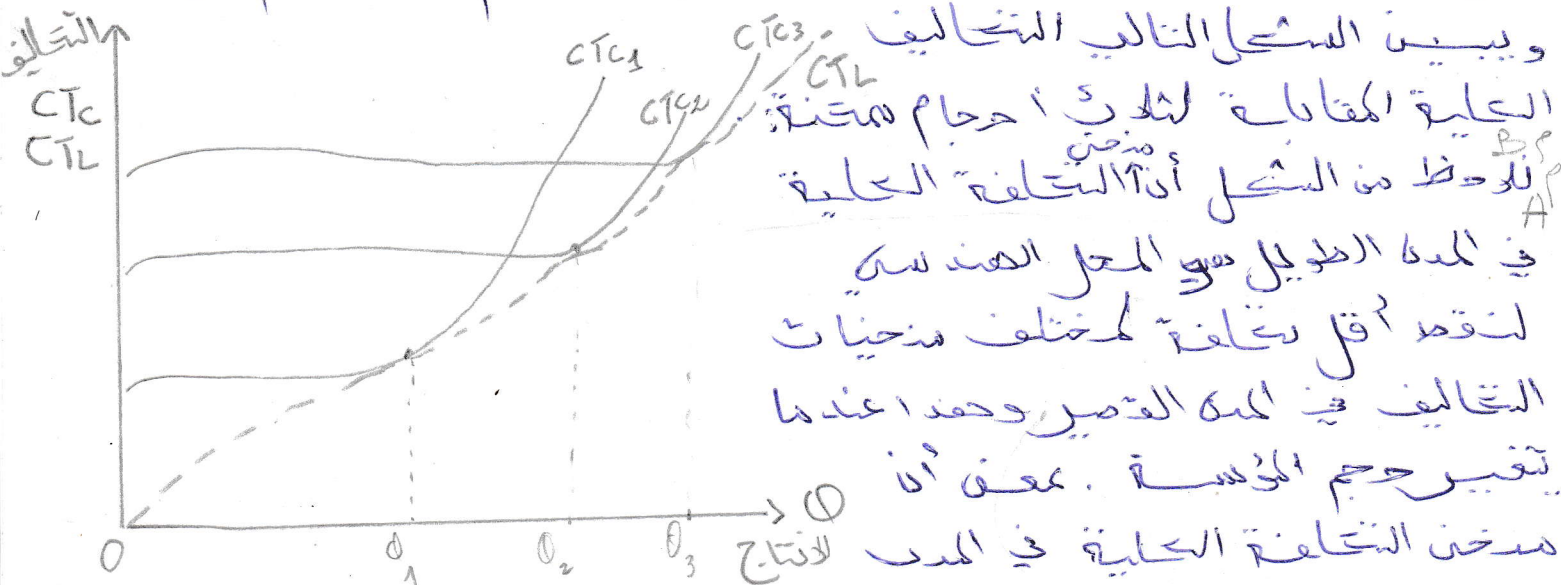 ويبين الشكل التالي التكاليف
الكلية المقابلة لثلاث أحجام ممكنة:
نلاحظ من الشكل أن منحنى التكلفة الكلية
في المدى الطويل هو المحل الهندسي
لنقط أقل تكلفة لمختلف منحنيات
التكاليف في المدى القصير وهذا عندما
يتغير حجم المؤسسة. بمعنى أن
منحنى التكلفة الكلية في المدى
التكاليف
CTC
CTL
CTC1
CTC2
CTC3
CTL
B
A
O
Q1
Q2
Q3
Q
الانتاج